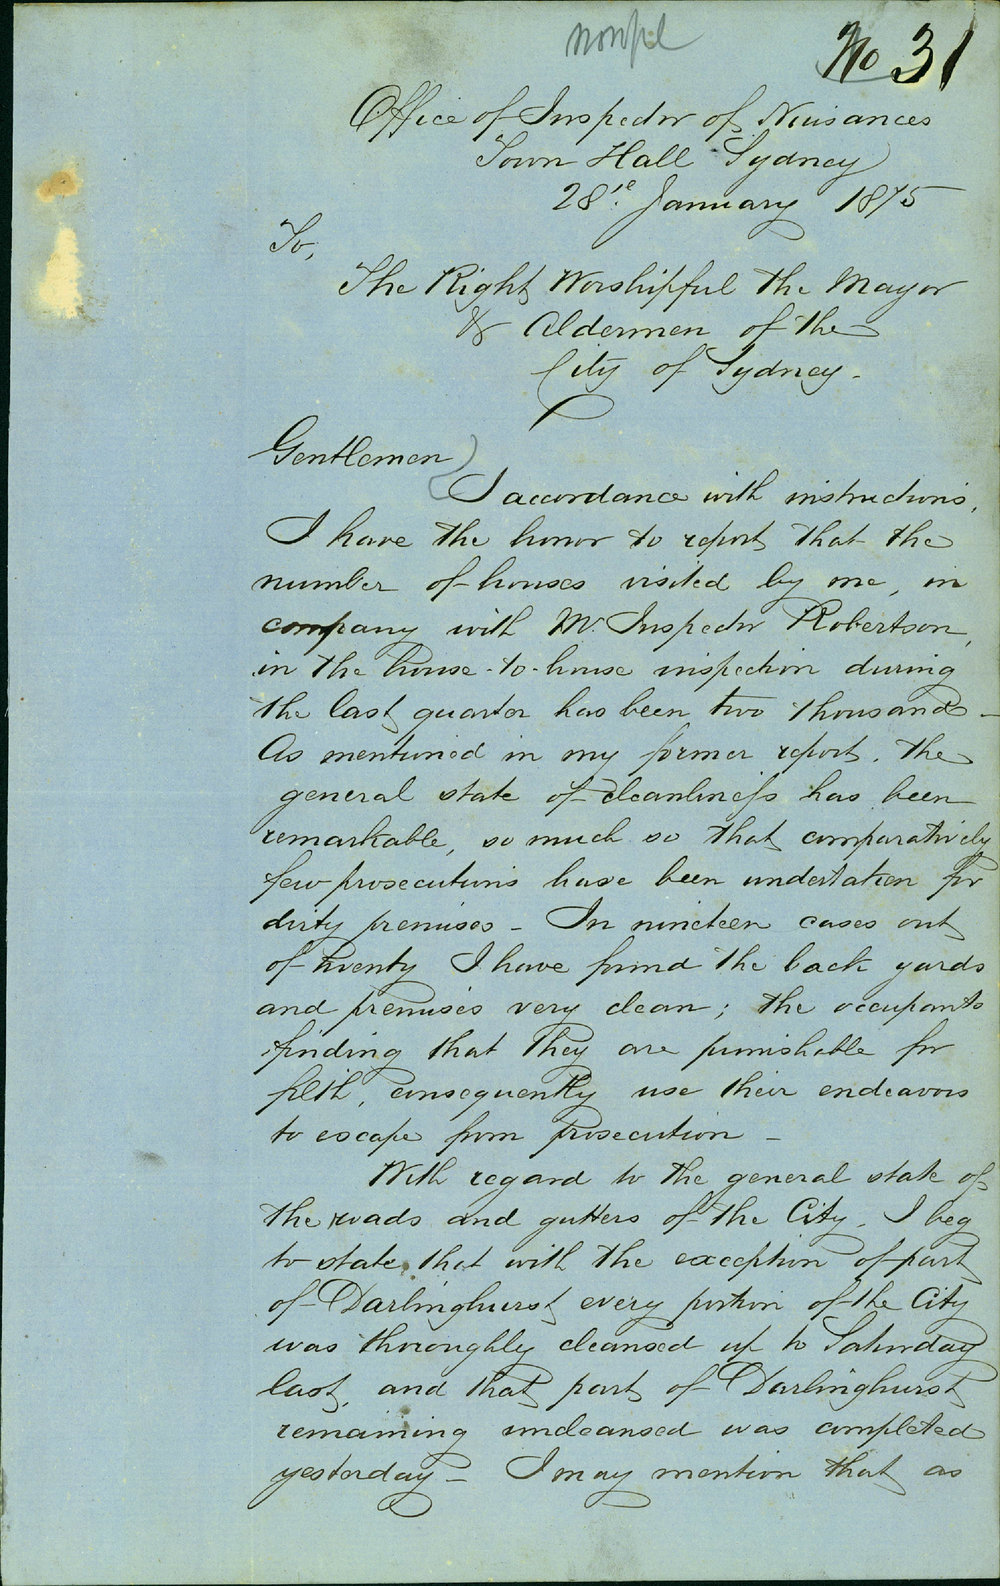 No 31
Office of Inspector of Nuisances
Town Hall Sydney
28th January 1875
To,
The Right Worshipful the Mayor
& Aldermen of the
City of Sydney -
Gentlemen
I accordance with instructions,
I have the honor to report that the
number of houses visited by me, in
company with Mr. Inspector Robertson,
in the house-to-house inspection during
the last quarter has been two thousand -
As mentioned in my former report, the
general state of cleanliness has been
remarkable, so much so that comparatively
few prosecutions have been undertaken for
dirty premises - In nineteen cases out
of twenty I have found the back yards
and premises very clean; the occupants
finding that they are punishable for
filth, consequently use their endeavors
to escape from prosecution -
With regard to the general state of
the roads and gutters of the City, I beg
to state that with the exception of part
of Darlinghurst every portion of the City
was thoroughly cleansed up to Saturday
last, and that part of Darlinghurst
remaining uncleansed was completed
yesterday - I may mention that as